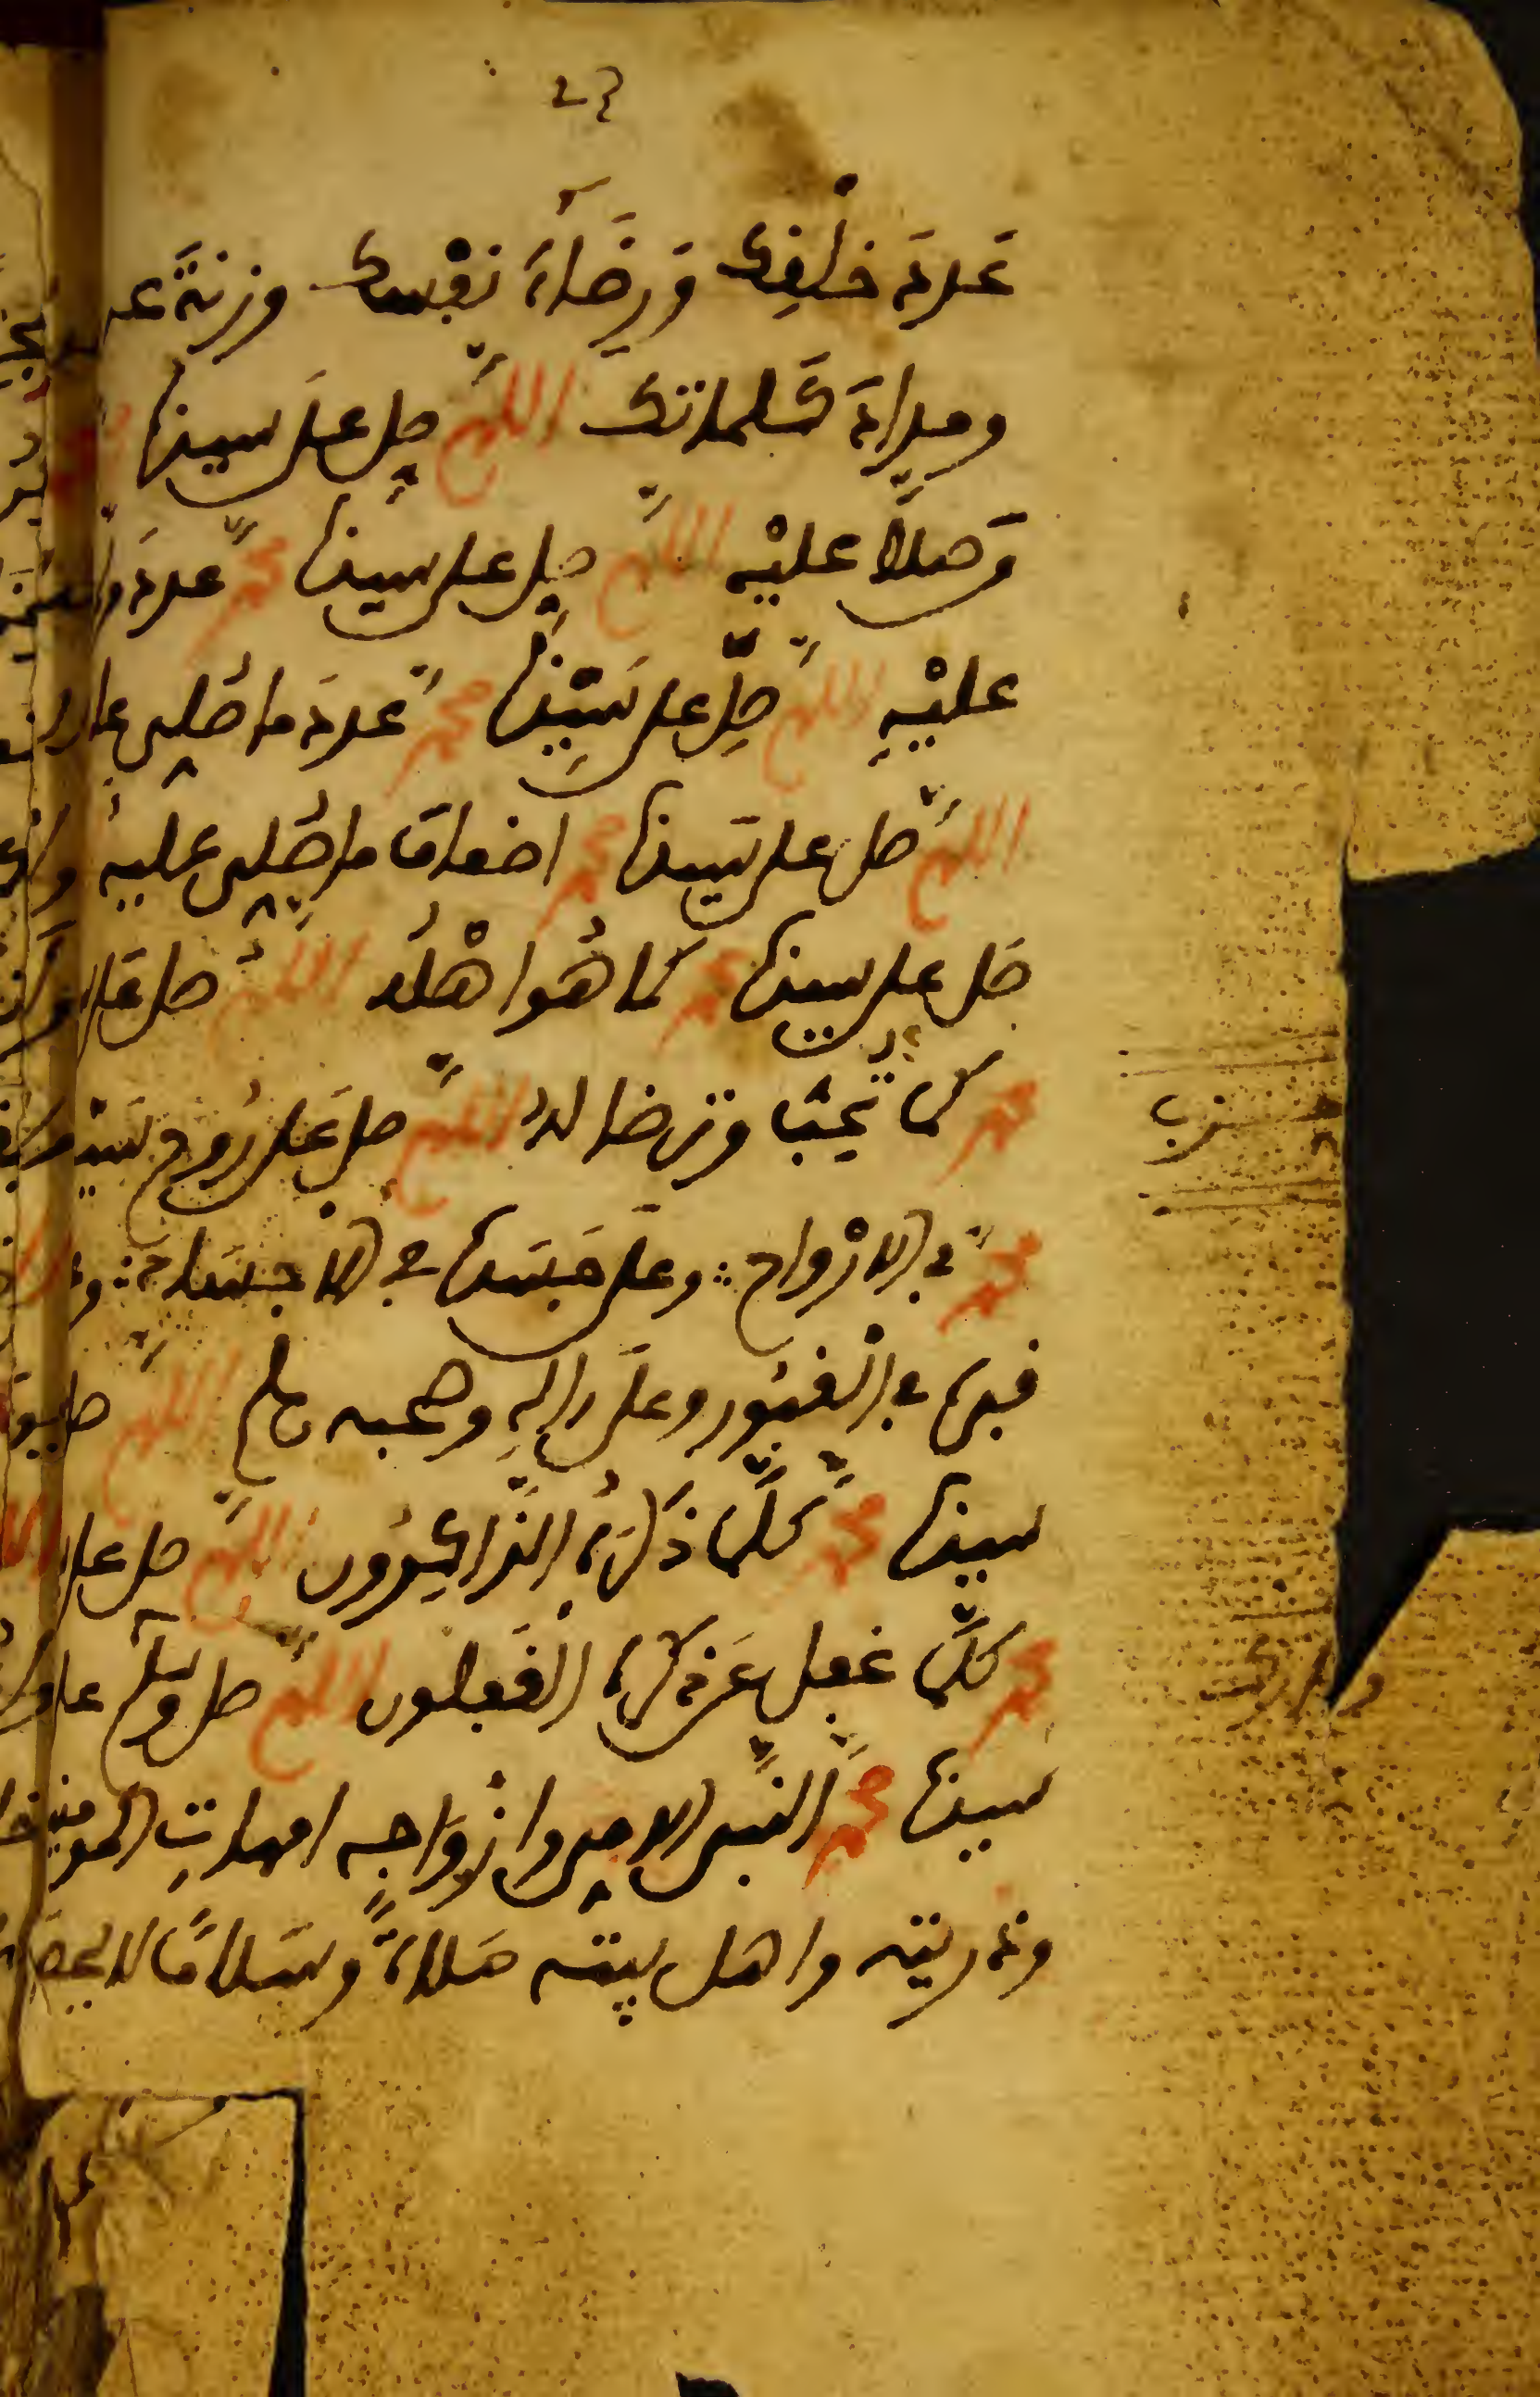 عدد خلفك ورضاء نفسك وزنة
ومداد كلماتك اللهم صل على سيدنا
وصلا عليه اللهم صل على سيدنا محمد عدد
عليه اللهم صل على سيدنا محمد عدد ما صلى
اللهم صل على سيدنا محمد اضعاف ما صلى عليه
صل على سيدنا محمد كما هو اهله اللهم صل على
محمد كما تحب وترضا له اللهم صل على روح سيدنا
حزب
محمد في الارواح وعلى جسده في الاجساد
قبره في القبور وعلى اله وصحبه وسلم اللهم صل
سيدنا محمد كلما ذكره الذاكرون اللهم صل على
محمد كلما غفل عن ذكره الغفلون اللهم صل وسلم على
سيدنا محمد النبي الامي وازواجه امهات المومنين
وذريته واهل بيته صلاة وسلاما لا